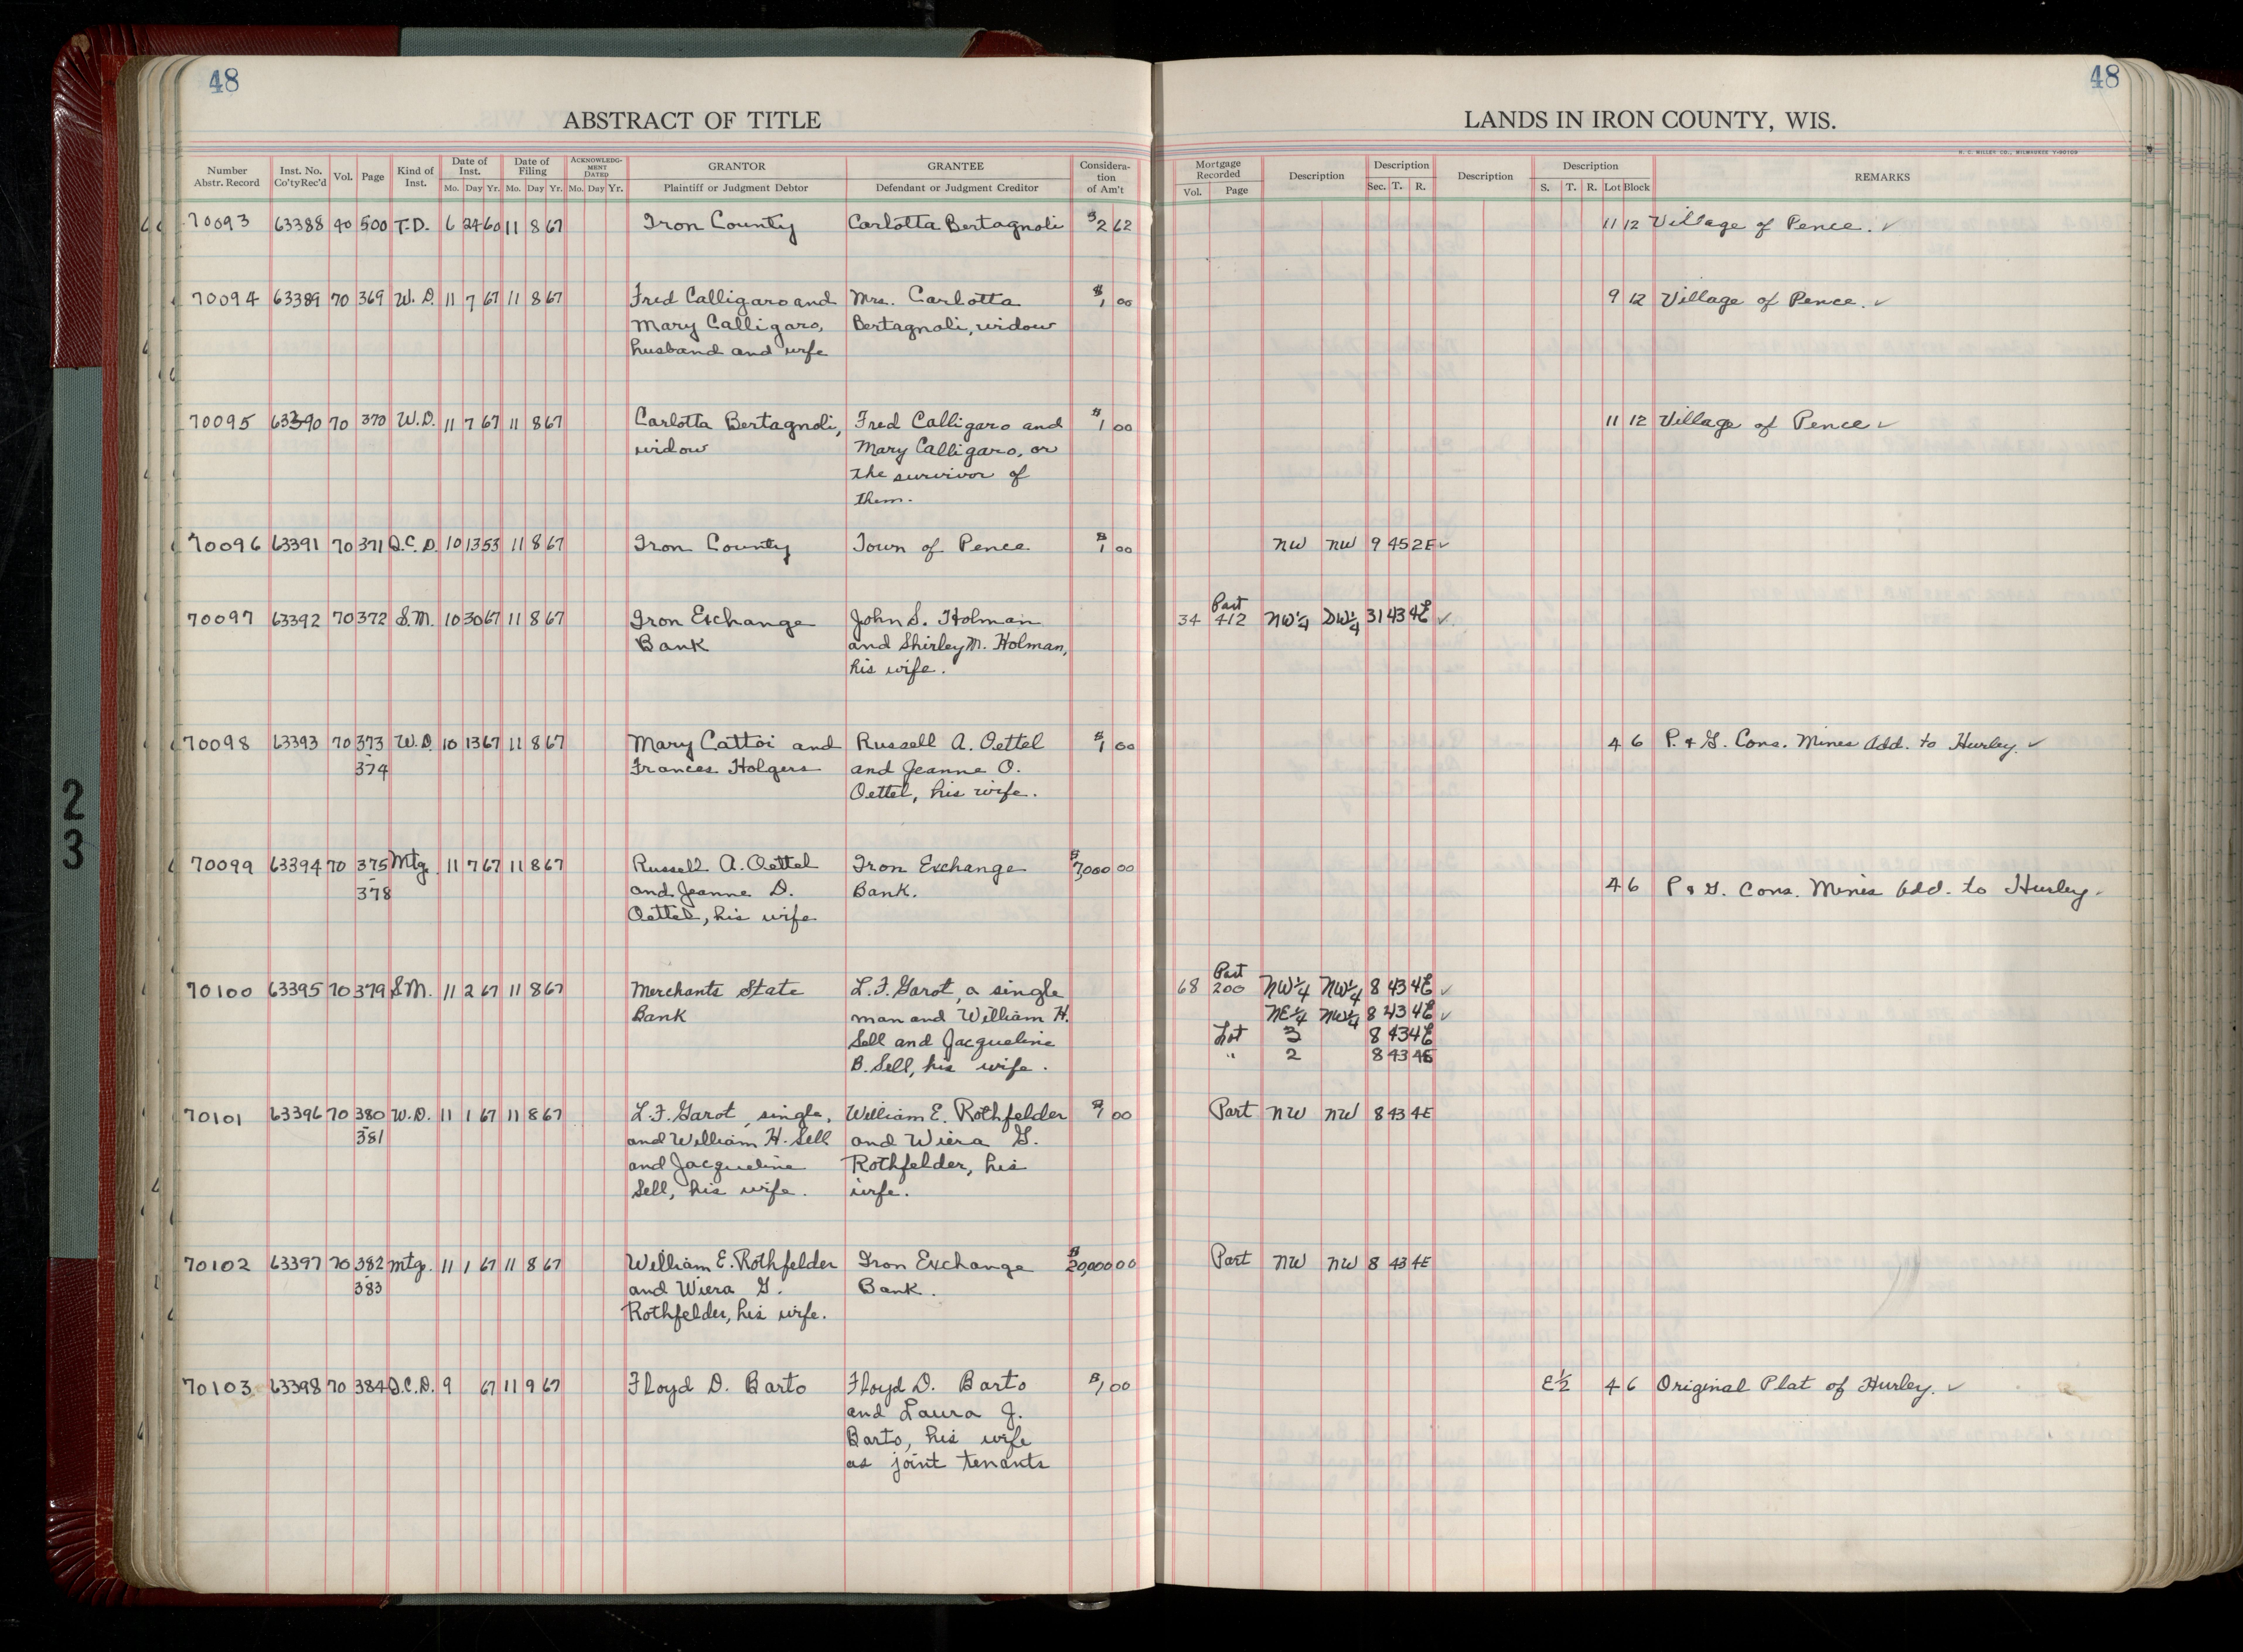 48
48
ABSTRACT OF TITLE
LANDS IN IRON COUNTY, WIS.
H. C. MILLER CO., MILWAUKEE
Number Abstr. Record | Inst. No. Co'ty Rec'd | Vol. | Page | Kind of Inst. | Date of Inst. Mo. Day Yr. | Date of Filing Mo. Day Yr. | ACKNOWLEDGMENT DATED Mo. Day Yr. | GRANTOR Plaintiff or Judgment Debtor | GRANTEE Defendant or Judgment Creditor | Consideration of Am't | Mortgage Recorded Vol. Page | Description | Description Sec. T. R. | Description | Description S. T. R. Lot Block | REMARKS
70093 63388 40 500 T.D. 6 24 60 11 8 67 Iron County Carlotta Bertagnoli $2 62 11 12 Village of Pence. ✓
70094 63389 70 369 W.D. 11 7 67 11 8 67 Fred Calligaro and Mrs. Carlotta $1 00 9 12 Village of Pence. ✓
Mary Calligaro, Bertagnoli, widow
husband and wife
70095 63390 70 370 W.D. 11 7 67 11 8 67 Carlotta Bertagnoli, Fred Calligaro and $1 00 11 12 Village of Pence ✓
widow Mary Calligaro, or
the survivor of
them.
70096 63391 70 371 Q.C.D. 10 13 53 11 8 67 Iron County Town of Pence $1 00 NW NW 9 45 2E ✓
Part
70097 63392 70 372 S.M. 10 30 67 11 8 67 Iron Exchange John S. Holman 34 412 NW¼ SW¼ 31 43 4E ✓
Bank and Shirley M. Holman,
his wife.
70098 63393 70 373 W.D. 10 13 67 11 8 67 Mary Cattoi and Russell A. Oettel $1 00 4 6 P. & G. Cons. Mines Add. to Hurley. ✓
- 374 Frances Holgers and Jeanne O.
Oettel, his wife.
70099 63394 70 375 Mtg. 11 7 67 11 8 67 Russell A. Oettel Iron Exchange $7,000 00
- 378 and Jeanne D. Bank. 4 6 P & G. Cons. Mines Add. to Hurley.
Oettel, his wife
Part
70100 63395 70 379 S.M. 11 2 67 11 8 67 Merchants State L.F. Garot, a single 68 200 NW¼ NW¼ 8 43 4E ✓
Bank man and William H. NE¼ NW¼ 8 43 4E ✓
Sell and Jacqueline Lot 3 8 43 4E
B. Sell, his wife. " 2 8 43 4E
70101 63396 70 380 W.D. 11 1 67 11 8 67 L.F. Garot, single, William E. Rothfelder $1 00 Part NW NW 8 43 4E
- 381 and William H. Sell and Wiera G.
and Jacqueline Rothfelder, his
Sell, his wife. wife.
70102 63397 70 382 Mtg. 11 1 67 11 8 67 William E. Rothfelder Iron Exchange $20,000 00 Part NW NW 8 43 4E
- 383 and Wiera G. Bank.
Rothfelder, his wife.
70103 63398 70 384 Q.C.D. 9 67 11 9 67 Floyd D. Barto Floyd D. Barto $1 00 E½ 4 6 Original Plat of Hurley. ✓
and Laura J.
Barto, his wife
as joint tenants
2
3